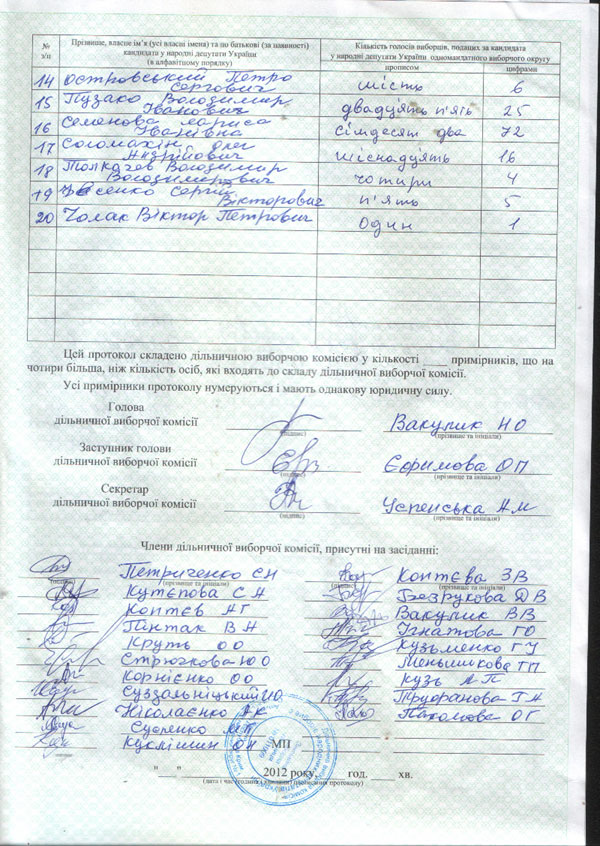 № з/п
Прізвище, власне ім'я (усі власні імена) та по батькові (за наявності)
кандидата у народні депутати України
(в алфавітному порядку)
Кількість голосів виборців, поданих за кандидата
у народні депутати України одномандатного виборчого округу
прописом
цифрами
14 Островський Петро
Сергович шість 6
15 Пузако Володимир
Іванович двадцять п'ять 25
16 Семенова Лариса
Іванівна сімдесят два 72
17 Соломахін Олег
Андрійович шіснадцять 16
18 Толкачев Володимир
Володимирович чотири 4
19 Сергій
Вікторович п'ять 5
20 Чолак Віктор Петрович один 1
Цей протокол складено дільничною виборчою комісією у кількості ____ примірників, що на
чотири більша, ніж кількість осіб, які входять до складу дільничної виборчої комісії.
Усі примірники протоколу нумеруються і мають однакову юридичну силу.
Голова
дільничної виборчої комісії Вакулик Н О
(підпис) (прізвище та ініціали)
Заступник голови
дільничної виборчої комісії Єфимова О П
(підпис) (прізвище та ініціали)
Секретар
дільничної виборчої комісії Успенська А М
(підпис) (прізвище та ініціали)
Члени дільничної виборчої комісії, присутні на засіданні:
Петриченко Є Н Коптєва З В
(підпис) (прізвище та ініціали) (прізвище та ініціали)
Кутєпова С А Безрукова Д В
Коптєв А Г Вакулик В В
Пінтак В А Ігнатова Г О
Круть О О Кузьменко Г У
Стрючкова Ю О Меньшикова Т П
Корнієнко О О Кузь А П
Суздальніцький І О Труфанова Т А
Ніколаєнко А К Пахомова О Г
Суденко М П
Куклішин О Н
МП
"__" ________ 2012 року, ____ год. ____ хв.
(дата і час (години і хвилини) підписання протоколу)